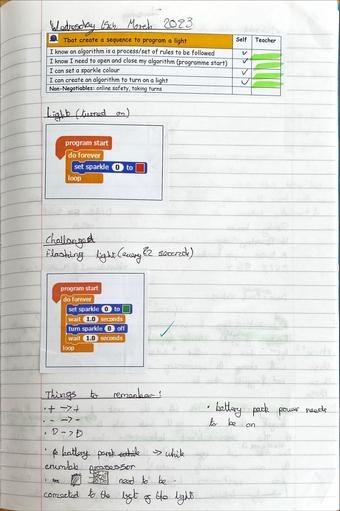 Wednesday 15th March 2023
That create a sequence to program a light Self Teacher
I know an algorithm is a process/set of rules to be followed
I know I need to open and close my algorithm (programme start)
I can set a sparkle colour
I can create an algorithm to turn on a light
Non-Negotiables: online safety, taking turns
Light (turned on)
program start
do forever
set sparkle 0 to
loop
Challenge
Flashing light (every 2 seconds)
program start
do forever
set sparkle 0 to
wait 1.0 seconds
turn sparkle 0 off
wait 1.0 seconds
loop
Things to remember:
· + -> +
· - -> -
· D -> D
· battery pack power needs
to be on
battery -> while
need to be
connected to the left of the light